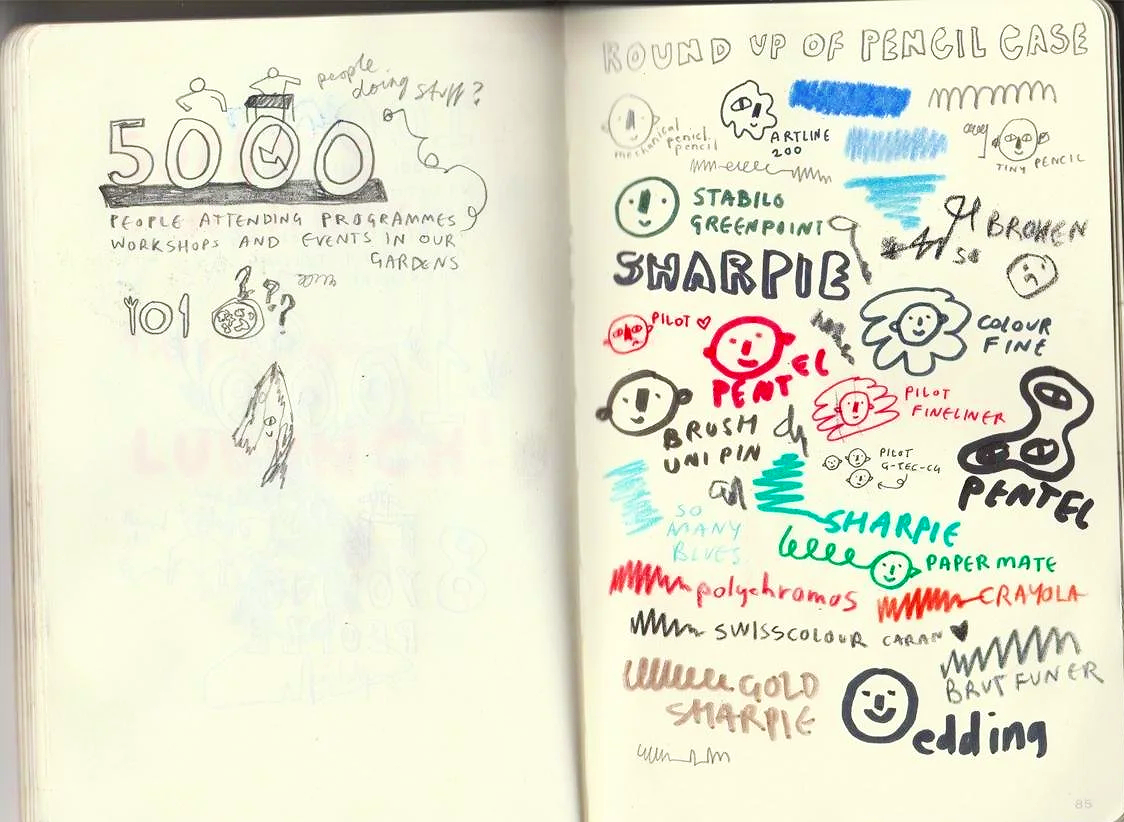 people
doing stuff?
5000
PEOPLE ATTENDING PROGRAMMES
WORKSHOPS AND EVENTS IN OUR
GARDENS
???
ROUND UP OF PENCIL CASE
mechanical
pencil
pencil
ARTLINE
200
TINY PENCIL
STABILO
GREENPOINT
BROKEN
SHARPIE
PILOT
PENTEL
COLOUR
FINE
BRUSH
UNI PIN
PILOT
FINELINER
PILOT
G-TEC-C4
PENTEL
SO
MANY
BLUES
SHARPIE
PAPER MATE
polychromos
CRAYOLA
SWISSCOLOUR CARAN
GOLD
SHARPIE
BRUTFUNER
edding
85